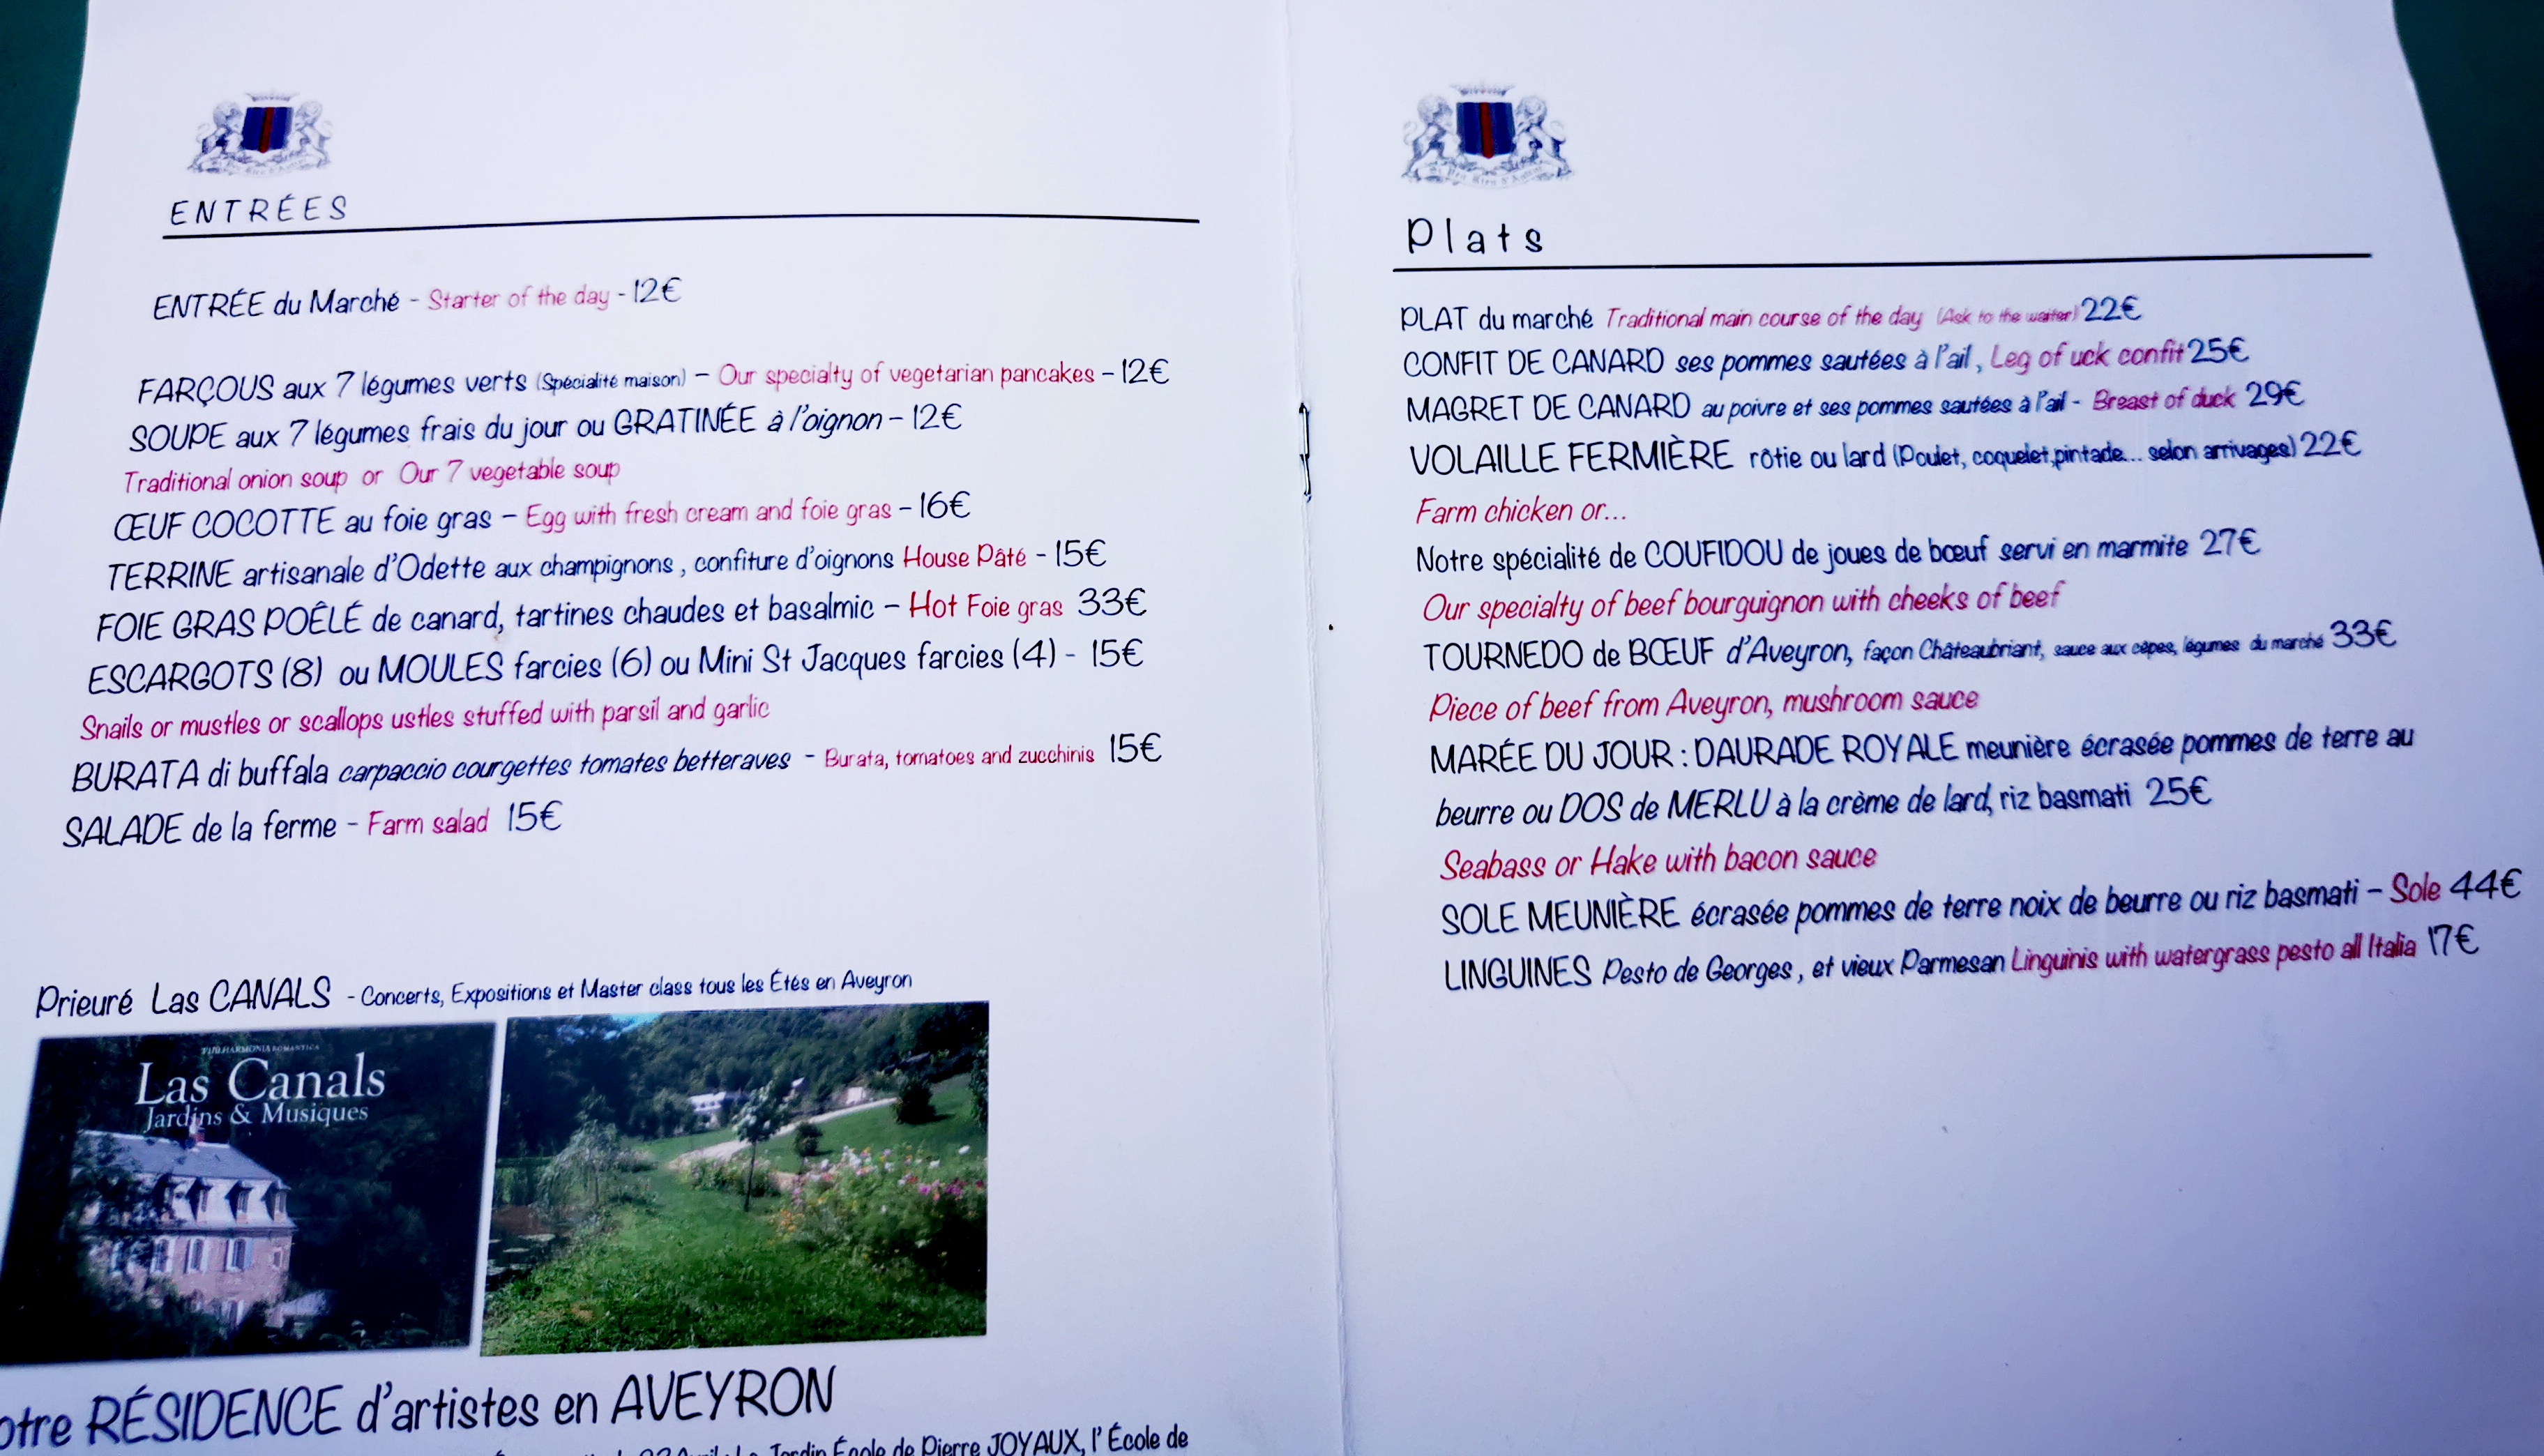 ENTRÉES
ENTRÉE du Marché - Starter of the day - 12€
FARÇOUS aux 7 légumes verts (Spécialité maison) – Our specialty of vegetarian pancakes – 12€
SOUPE aux 7 légumes frais du jour ou GRATINÉE à l'oignon – 12€
Traditional onion soup or Our 7 vegetable soup
ŒUF COCOTTE au foie gras – Egg with fresh cream and foie gras – 16€
TERRINE artisanale d'Odette aux champignons , confiture d'oignons House Pâté - 15€
FOIE GRAS POÊLÉ de canard, tartines chaudes et basalmic – Hot Foie gras 33€
ESCARGOTS (8) ou MOULES farcies (6) ou Mini St Jacques farcies (4) - 15€
Snails or mustles or scallops ustles stuffed with parsil and garlic
BURATA di buffala carpaccio courgettes tomates betteraves - Burata, tomatoes and zucchinis 15€
SALADE de la ferme - Farm salad 15€
Prieuré Las CANALS - Concerts, Expositions et Master class tous les Étés en Aveyron
PHILHARMONIA ROMANTICA
Las Canals
Jardins & Musiques
otre RÉSIDENCE d'artistes en AVEYRON
Jardin École de Pierre JOYAUX, l' École de
Plats
PLAT du marché Traditional main course of the day (Ask to the waiter) 22€
CONFIT DE CANARD ses pommes sautées à l'ail , Leg of uck confit 25€
MAGRET DE CANARD au poivre et ses pommes sautées à l'ail - Breast of duck 29€
VOLAILLE FERMIÈRE rôtie ou lard (Poulet, coquelet,pintade... selon arrivages) 22€
Farm chicken or...
Notre spécialité de COUFIDOU de joues de bœuf servi en marmite 27€
Our specialty of beef bourguignon with cheeks of beef
TOURNEDO de BŒUF d'Aveyron, façon Châteaubriant, sauce aux cèpes, légumes du marché 33€
Piece of beef from Aveyron, mushroom sauce
MARÉE DU JOUR : DAURADE ROYALE meunière écrasée pommes de terre au
beurre ou DOS de MERLU à la crème de lard, riz basmati 25€
Seabass or Hake with bacon sauce
SOLE MEUNIÈRE écrasée pommes de terre noix de beurre ou riz basmati – Sole 44€
LINGUINES Pesto de Georges , et vieux Parmesan Linguinis with watergrass pesto all Italia 17€